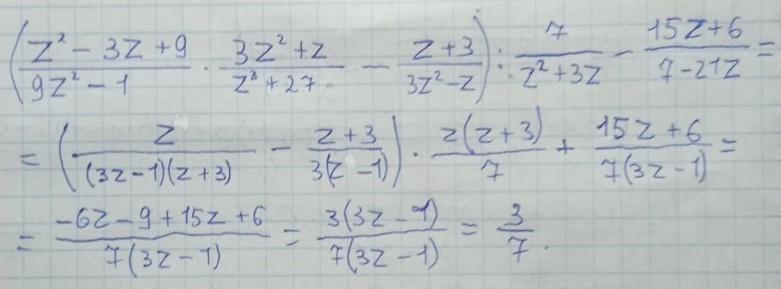 (z² - 3z + 9)/(9z² - 1) · (3z² + z)/(z³ + 27) - (z + 3)/(3z² - z)) : 7/(z² + 3z) - (15z + 6)/(7 - 21z) =
= (z/((3z - 1)(z + 3)) - (z + 3)/(3(z - 1))) · z(z + 3)/7 + (15z + 6)/(7(3z - 1)) =
= (-6z - 9 + 15z + 6)/(7(3z - 1)) = 3(3z - 1)/(7(3z - 1)) = 3/7.